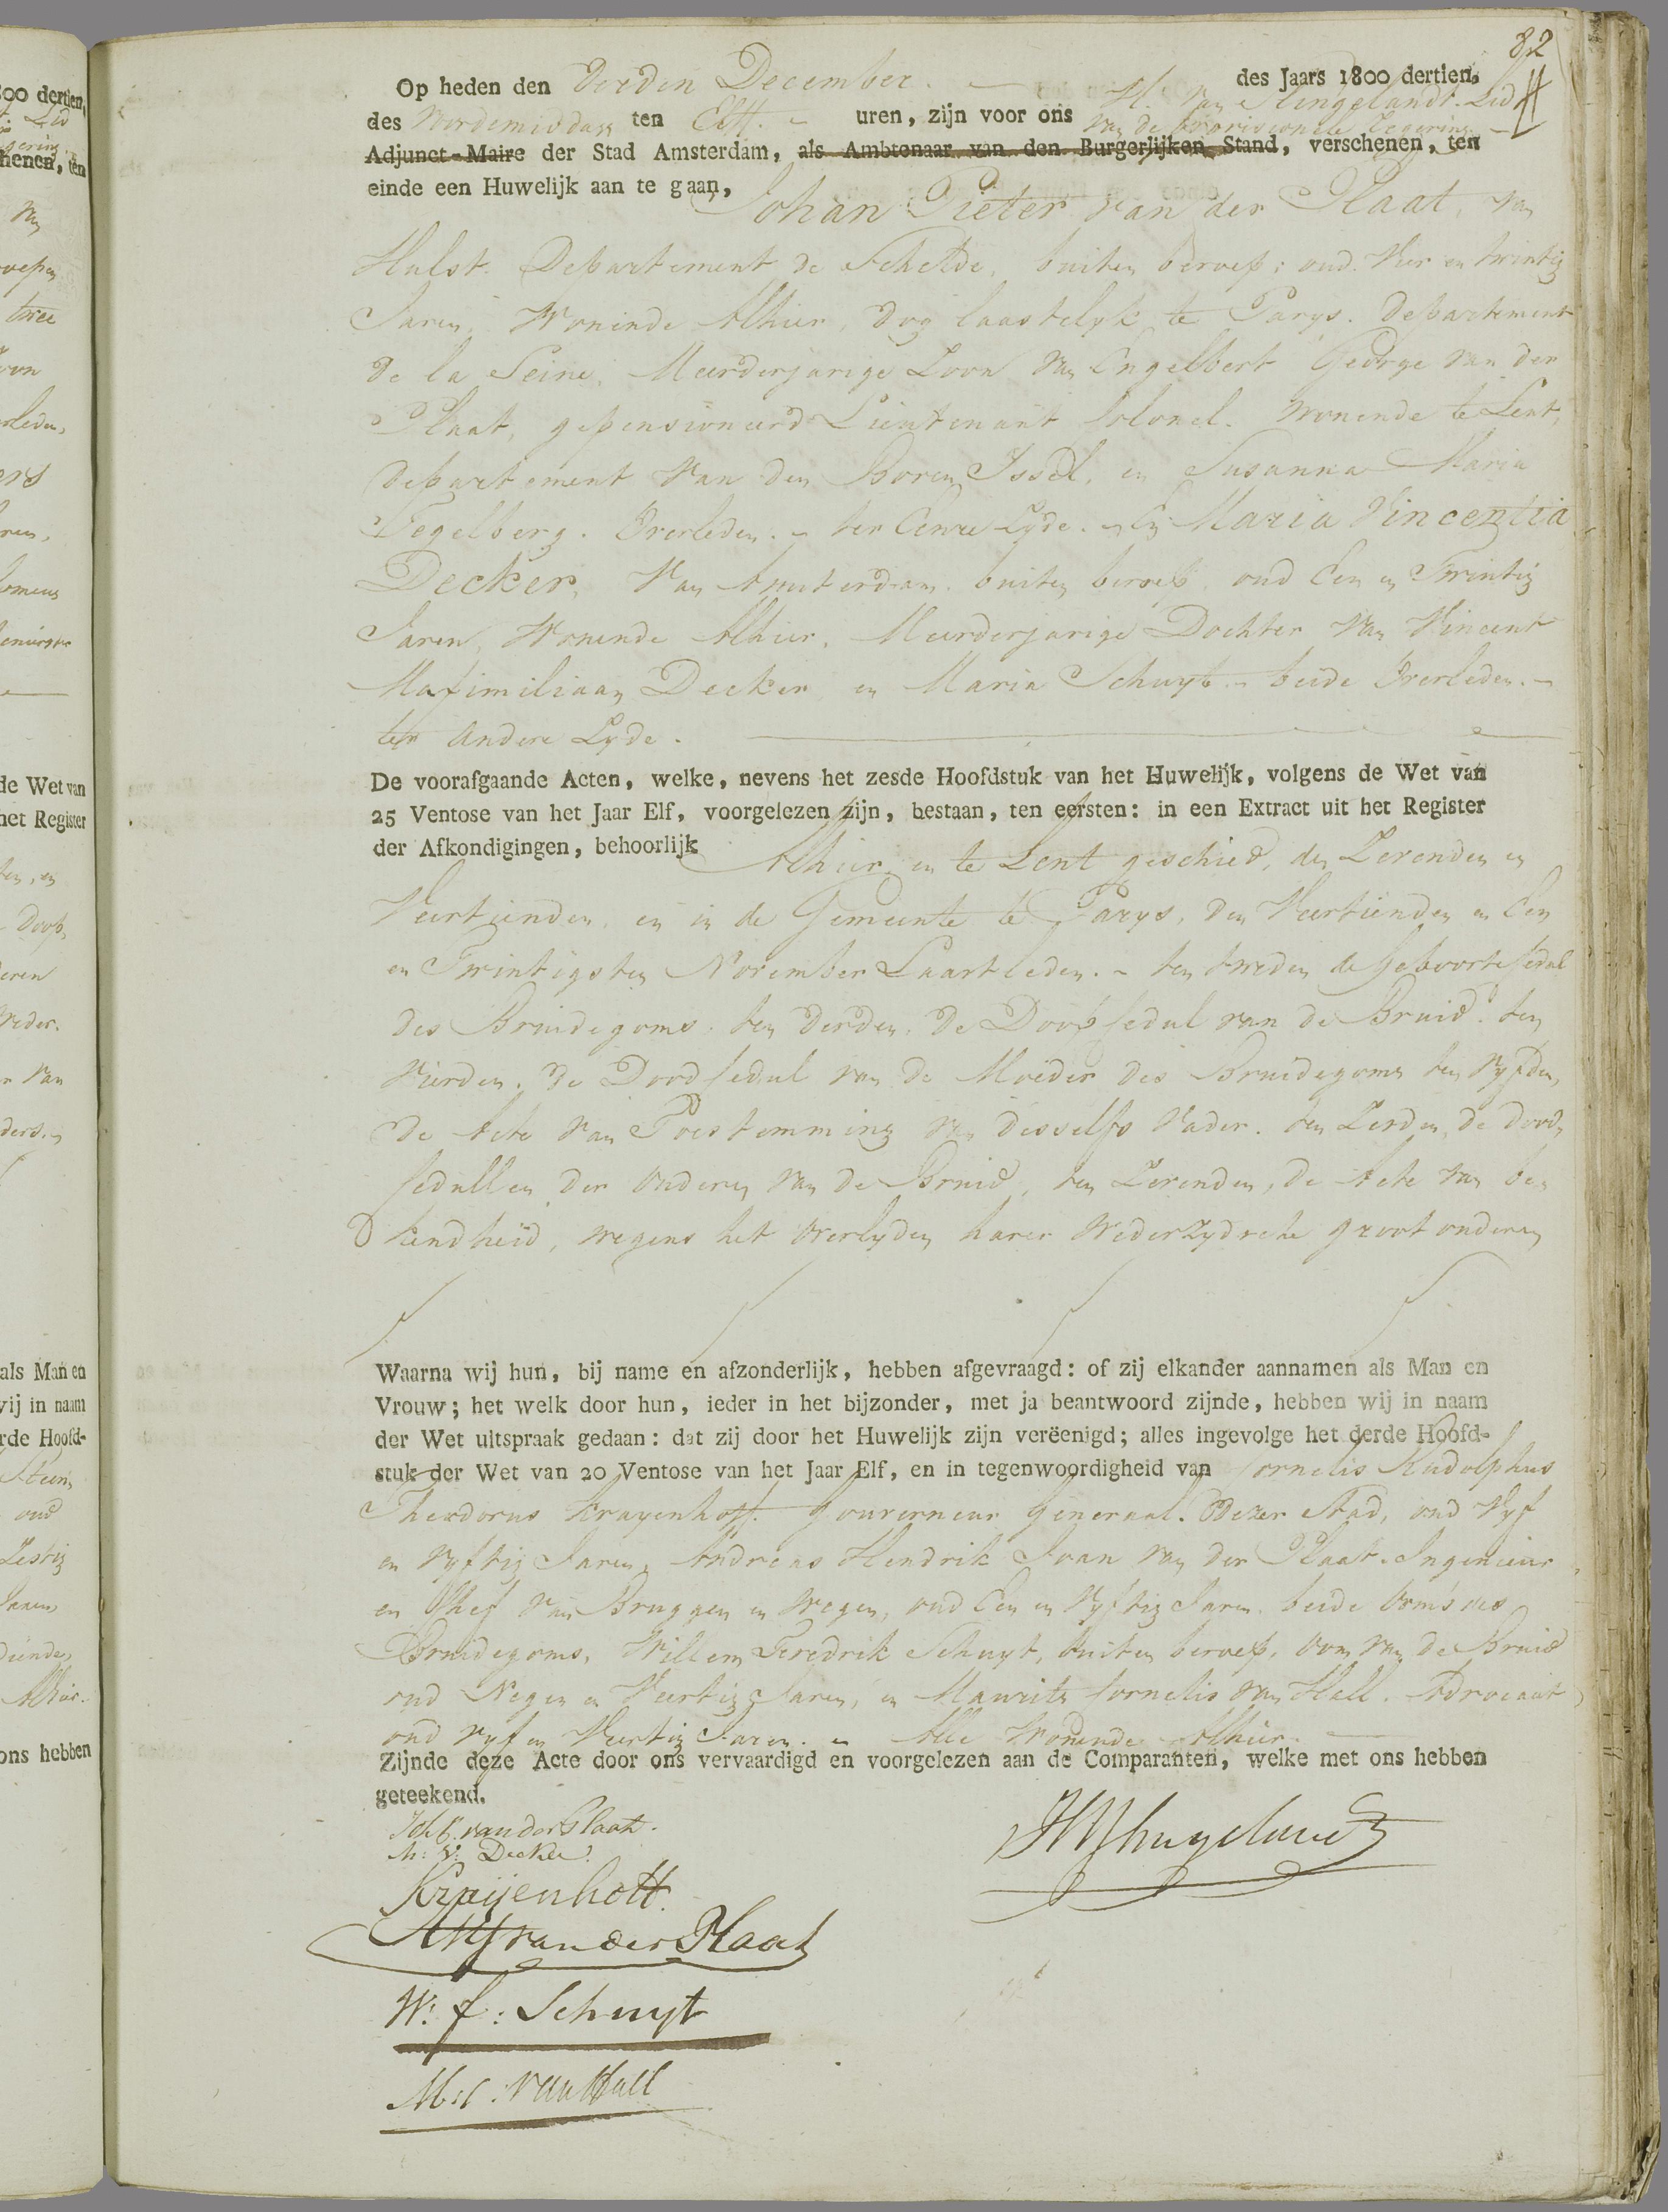 82
Op heden den derden December. des Jaars 1800 dertien.
des Voordemiddags ten Elf. uren, zijn voor ons H. van Slingelandt. Lid
van de provisioneele Regering
Adjunct-Maire der Stad Amsterdam, als Ambtenaar van den Burgerlijken Stand, verschenen, ten
einde een Huwelijk aan te gaan, Johan Pieter van der Plaat, van
Hulst. Departement de Schelde, buiten beroep; oud Vier en twintig
Jaren, Woninde Alhier, dog laastelyk te Parys. Departement
de la Seine, Meerderjarige Zoon van Engelbert George van der
Plaat, gepensioneerd Lieutenant Colonel. wonende te Lent,
Departement van den Boven Issel, en Susanna Maria
Tegelberg. Overleden. ter Eenre Zyde. en Maria Vincentia
Decker, Van Amsterdam. buiten beroep oud Een en Twintig
Jaren, Wonende Alhier, Meerderjarige Dochter van Vincent
Maximiliaan Decker en Maria Schuyt. beide Overleden.
ter andere Zyde.
De voorafgaande Acten, welke, nevens het zesde Hoofdstuk van het Huwelijk, volgens de Wet van
25 Ventose van het Jaar Elf, voorgelezen zijn, bestaan, ten eersten: in een Extract uit het Register
der Afkondigingen, behoorlijk Alhier en te Lent geschied, den Zevenden en
Veertienden, en in de Gemeente te Parys, den Veertienden en Een
en Twintigsten November Laastleden. ten tweden de Geboortecedul
des Bruidegoms. ten derden, de Doopcedul van de Bruid. ten
Vierden, de Doodcedul van de Moeder des Bruidegoms ten vyfden,
de Acte van Toestemming van desselfs Vader. ten Zesden, de dood
cedullen der Ouderen van de Bruid, ten Zevenden, de Acte van be
kendheid, wegens het Overlyden harer Wederzydsche grootouderen
Waarna wij hun, bij name en afzonderlijk, hebben afgevraagd: of zij elkander aannamen als Man en
Vrouw; het welk door hun, ieder in het bijzonder, met ja beantwoord zijnde, hebben wij in naam
der Wet uitspraak gedaan: dat zij door het Huwelijk zijn verëenigd; alles ingevolge het derde Hoofd-
stuk der Wet van 20 Ventose van het Jaar Elf, en in tegenwoordigheid van Cornelis Rudolphus
Theodorus Krayenhoff. Gouverneur Generaal. Dezer Stad, oud Vyf
en Vyftig Jaren, Andreas Hendrik Jvan van der Plaat. Ingenieur
en Chef van Bruggen en Wegen, oud Een en Vyftig Jaren. beide Oom's des
Bruidegoms, Willem Fredrik Schuyt, buiten beroep, Oom van de Bruid
oud Negen en Veertig Jaren, en Maurits Cornelis van Hall. Advocaat
oud vyf en Veertig Jaren. Alle Wonende Alhier.
Zijnde deze Acte door ons vervaardigd en voorgelezen aan de Comparanten, welke met ons hebben
geteekend.
Joh P. van der Plaat.
M: V: Decker.
HVSlingelandt
Kraijenhoff
AHJ van der Plaat
W: f: Schuyt
M: C: van Hall